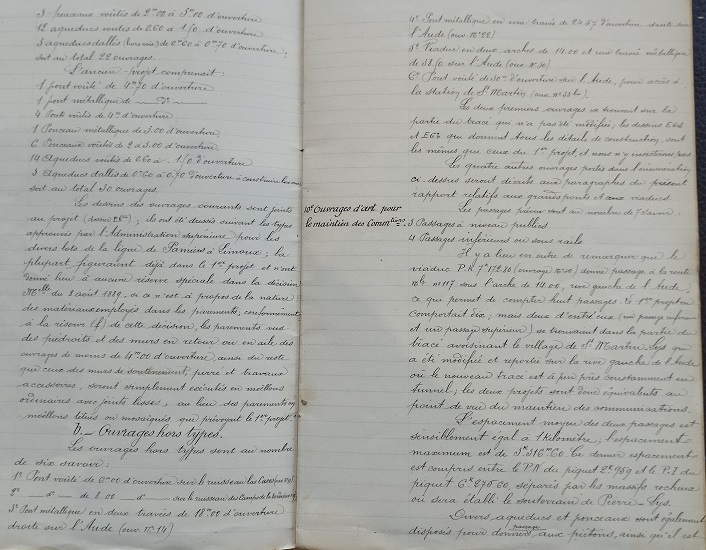 3 ponceaux voûtés de 2.00 à 3.00 d'ouverture
12 aqueducs voûtés de 0.60 à 1.10 d'ouverture
3 aqueducs dallés de 0.60 à 0.70 d'ouverture,
soit au total 22 ouvrages.
L'ancien projet comprenait:
1 pont voûté de 4.70 d'ouverture
1 pont métallique de
4 Ponts voûtés de 4.00 d'ouverture
1 Ponceau métallique de 3.00 d'ouverture
6 Ponceaux voûtés de 2 à 3.00 d'ouverture
14 Aqueducs voûtés de 0.60 à 1.10 d'ouverture
3 Aqueducs dallés de 0.60 à 0.70 d'ouverture à construire
soit au total 30 ouvrages.
Les dessins des ouvrages courants sont joints
au projet; ils ont été dressés suivant les types
approuvés par l'Administration supérieure pour les
divers lots de la ligne de Pamiers à Limoux; la
plupart figuraient déjà dans le 1er projet et n'ont
donné lieu à aucune réserve spéciale dans la décision
Mlle du 8 août 1889, si ce n'est à propos de la nature
des matériaux employés dans les parements; conformément
à la réserve (f) de cette décision, les parements vus
des piédroits et des murs en retour ou en aile des
ouvrages de moins de 4.00 d'ouverture, ainsi du reste
que ceux des murs de soutènement, perré et travaux
accessoires, seront simplement exécutés en moëllons
ordinaires avec joints lissés, au lieu des parements en
moëllons têtués ou mosaïqués que prévoyait le 1er projet.
V._ Ouvrages hors types.
Les ouvrages hors types sont au nombre
de six savoir:
1° Pont voûté de d'ouverture sur le ruisseau
2° _ d° _ de 8.00 _ d° _ sur le ruisseau
3° Pont métallique en deux travées de 18.00 d'ouverture
droite sur l'Aude (ouv. N° 14)
4° Pont métallique en une travée de 24.50 d'ouverture droite sur
l'Aude (ouv. N° 22)
5° Viaduc en deux arches de 14.00 et une travée métallique
de 38.10 sur l'Aude (ouv. N° 30)
6° Pont voûté de 30m d'ouverture sur l'Aude, pour accès à
la station de St Martin
Les deux premiers ouvrages se trouvant sur la
partie du tracé qui n'a pas été modifiée, les dessins
qui donnent tous les détails de construction, sont
les mêmes que ceux du 1er projet, et nous n'y
Les quatre autres ouvrages portés dans l'énumération
ci-dessus seront décrits aux paragraphes du présent
rapport relatifs aux grands ponts et aux viaducs.
10° Ouvrages d'art pour
le maintien des Commtions
Les passages prévus sont au nombre de 7 savoir:
3 Passages à niveau publics
4 Passages inférieurs ou sous rails
Il y a lieu en outre de remarquer que le
viaduc donne passage à la route
Nle N° 117 sous l'arche de 14.00, rive gauche de l'Aude,
ce qui permet de compter huit passages. Le 1er projet en
comportait dix; mais deux d'entre eux (un passage inférieur
et un passage supérieur) se trouvaient dans la partie du
tracé avoisinant le village de St Martin Lys qui
a été modifiée et reportée sur la rive gauche de l'Aude
où le nouveau tracé est à peu près constamment en
tunnel; les deux projets sont donc équivalents au
point de vue du maintien des communications.
L'espacement moyen des deux passages est
sensiblement égal à 1 kilomètre, l'espacement
maximum est de 3K316m60. Ce dernier espacement
est compris entre le P.N. du piquet 2K959 et le P.I. du
piquet 6K275.60, séparés par les massifs rocheux
où sera établi le souterrain de Pierre-Lys.
Divers aqueducs et ponceaux sont également
disposés pour donner passage aux piétons, ainsi qu'il est